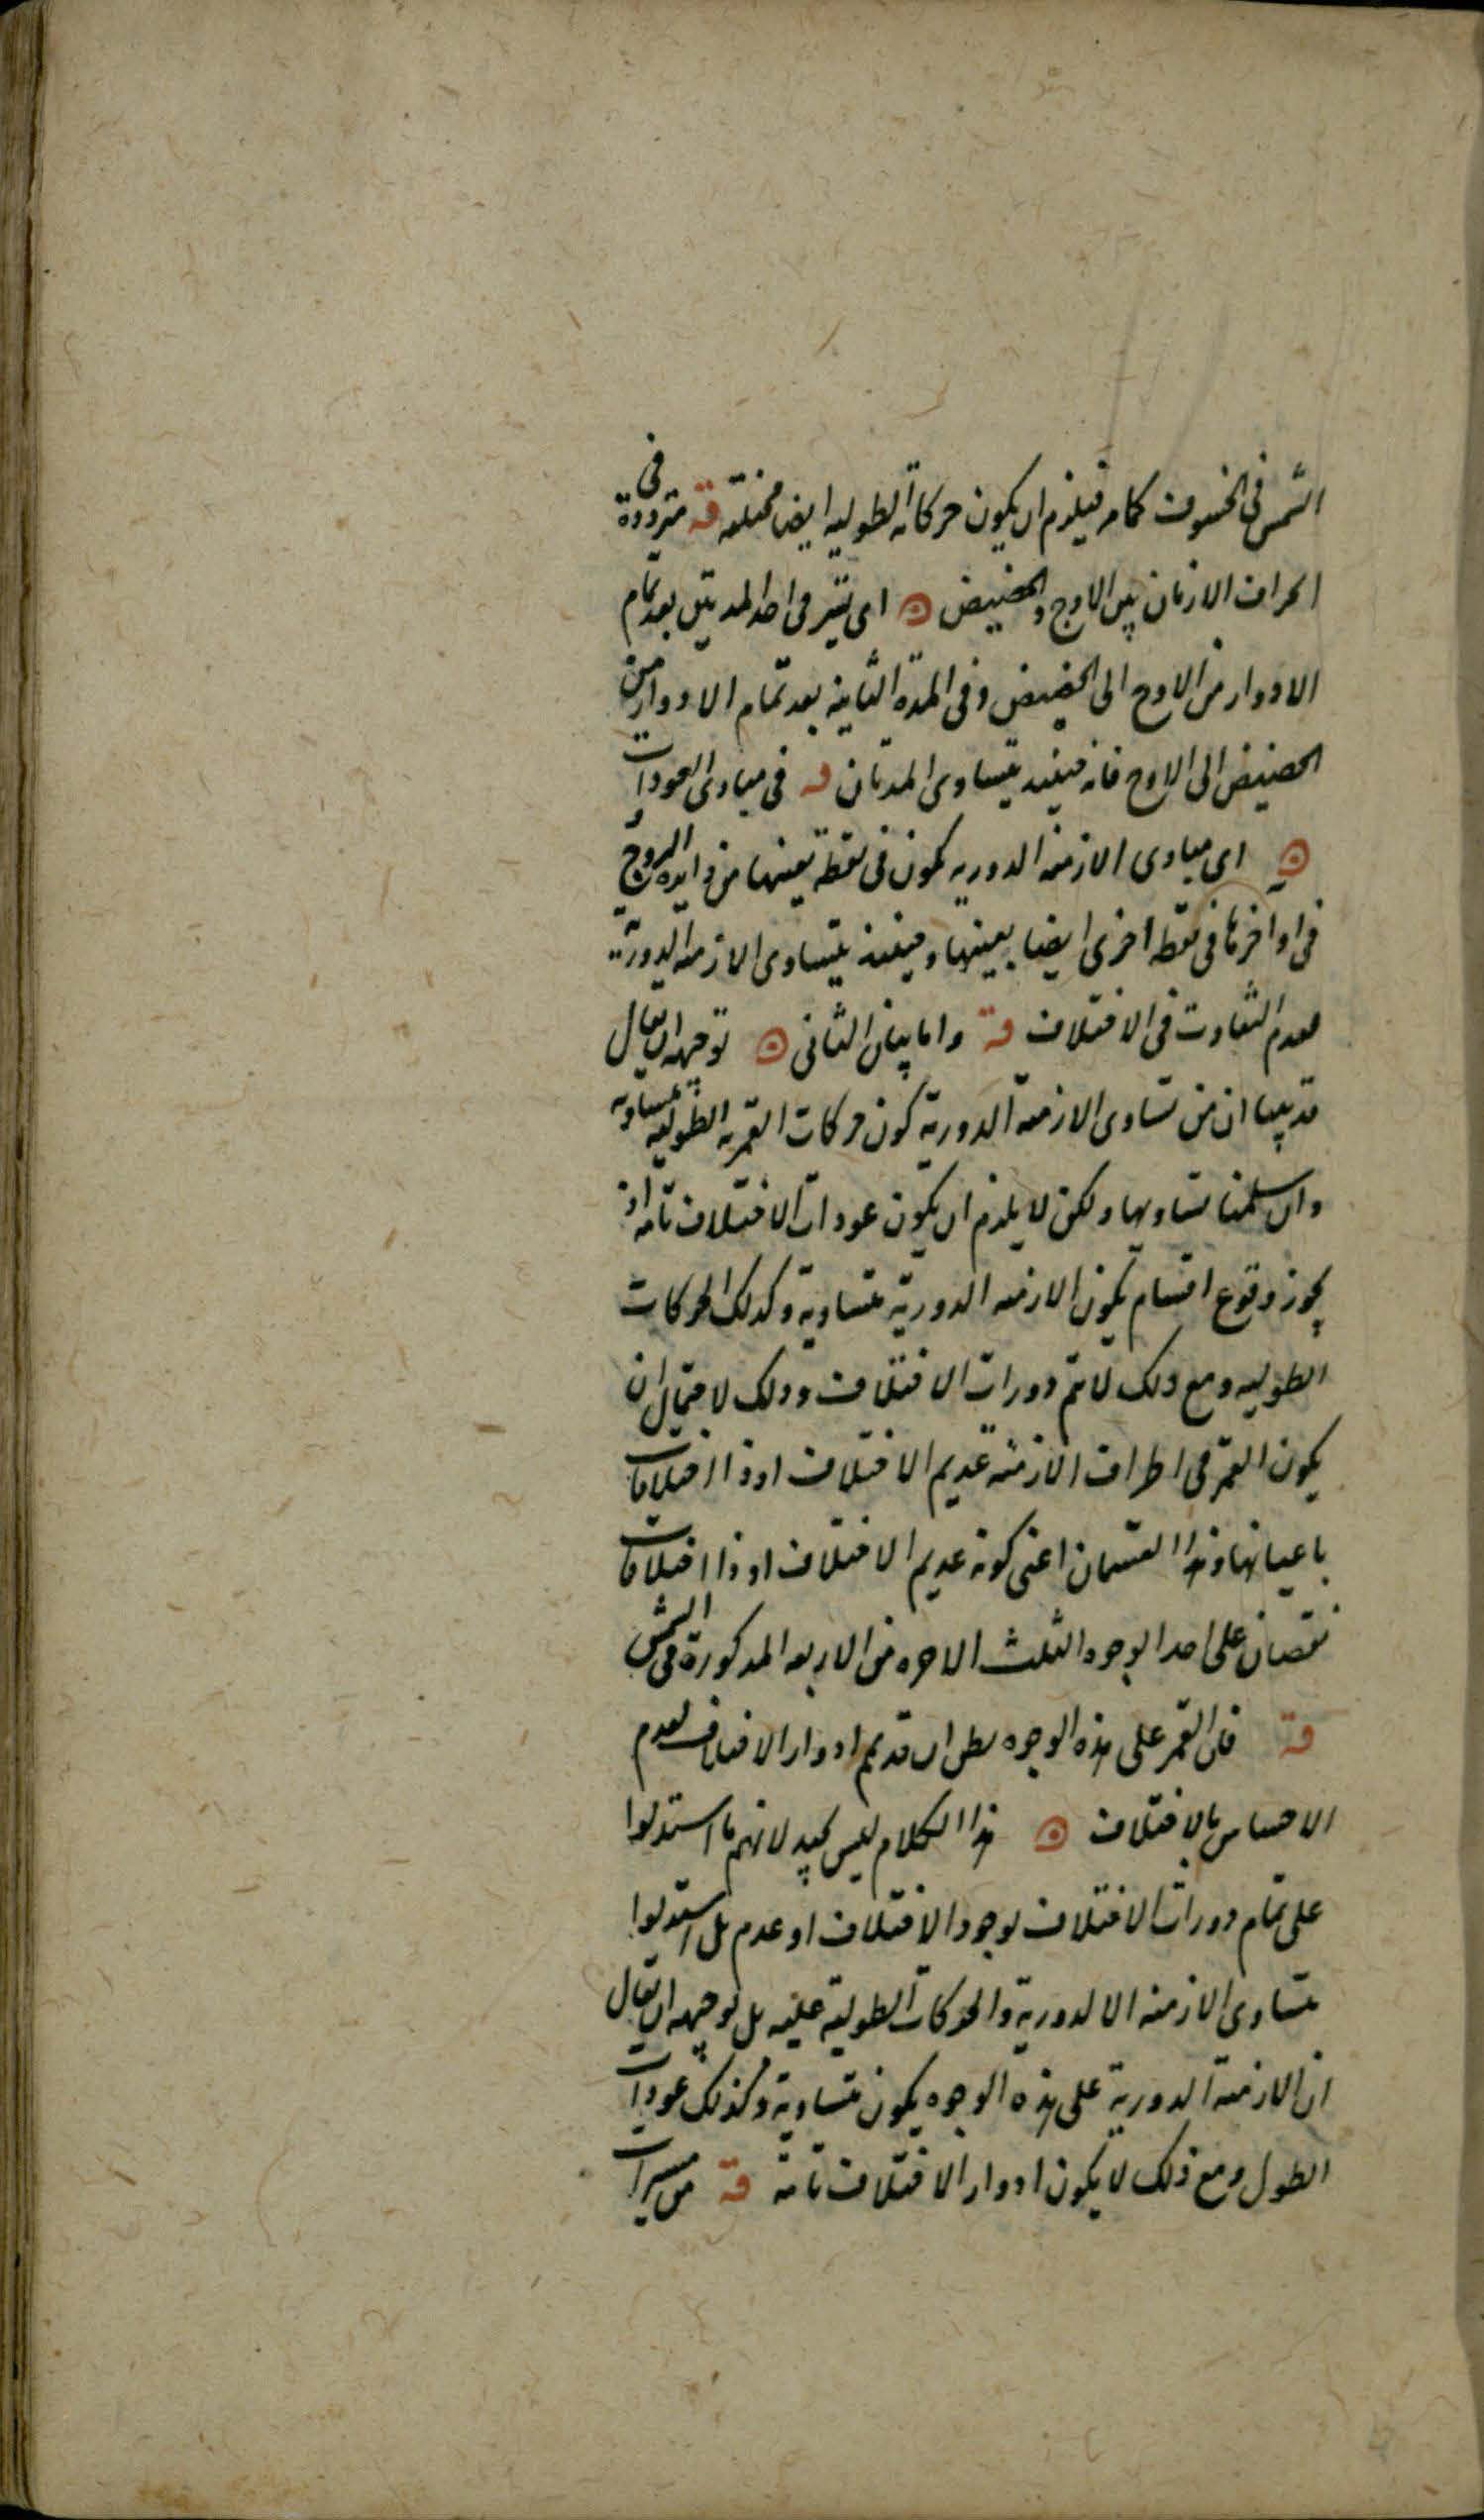 الشمس فى الخسوف كما مر فيلزم ان يكون حركاته الطوليه ايضا مختلفه قه مترددة فى
اطراف الازمان بين الاوج والحضيض ای يتيسر فى احد المدتين بعد تمام
الادوار من الاوج الى الحضيض وفى المدة الثانيه بعد تمام الادوار من
الحضيض الى الاوج فانه حينئد يتساوى المدتان قه فى مبادى العودات
اى مبادى الازمنه الدوريه يكون فى نقطه بعينها من دايره البروج و
فى اواخرها فى نقطه اخرى ايضا بعينها وحينئذ يتساوى الازمنه الدورية
لعدم التفاوت فى الاختلاف قه واما بيان الثانى توجيهه ان يقال
قد بينا ان من تساوى الازمنه الدورية كون حركات القمريه الطوليه متساويه
وان سلمنا تساويها ولكن لا يلزم ان يكون عودات الاختلاف تامه اذ
يجوز وقوع اقسام يكون الازمنه الدورية متساوية وكذلك الحركات
الطوليه ومع ذلك لا تتم دورات الاختلاف وذلك لاحتمال ان
يكون القمر فى اطراف الازمنه عديم الاختلاف او ذا اختلافات
باعيانها وهذا القسمان اعنى كونه عديم الاختلاف او ذا اختلافات
نقصان على احد الوجوه الثلث الاخره من الاربعه المذكورة فى الشمس
قه فان القمر على هذه الوجوه يظن ان قد تم ادوار الاختلاف لعدم
الاحساس بالاختلاف هذا الكلام ليس بجيد لانهم ما استدلوا
على تمام دورات الاختلاف بوجود الاختلاف او عدم بل استدلوا
بتساوى الازمنه الالدورية والحركات الطولية عليه بل توجيهه ان يقال
ان الازمنة الدورية على هذه الوجوه يكون متساوية وكذلك عودات
الطول ومع ذلك لا يكون ادوار الاختلاف تامة قه من مسيرات